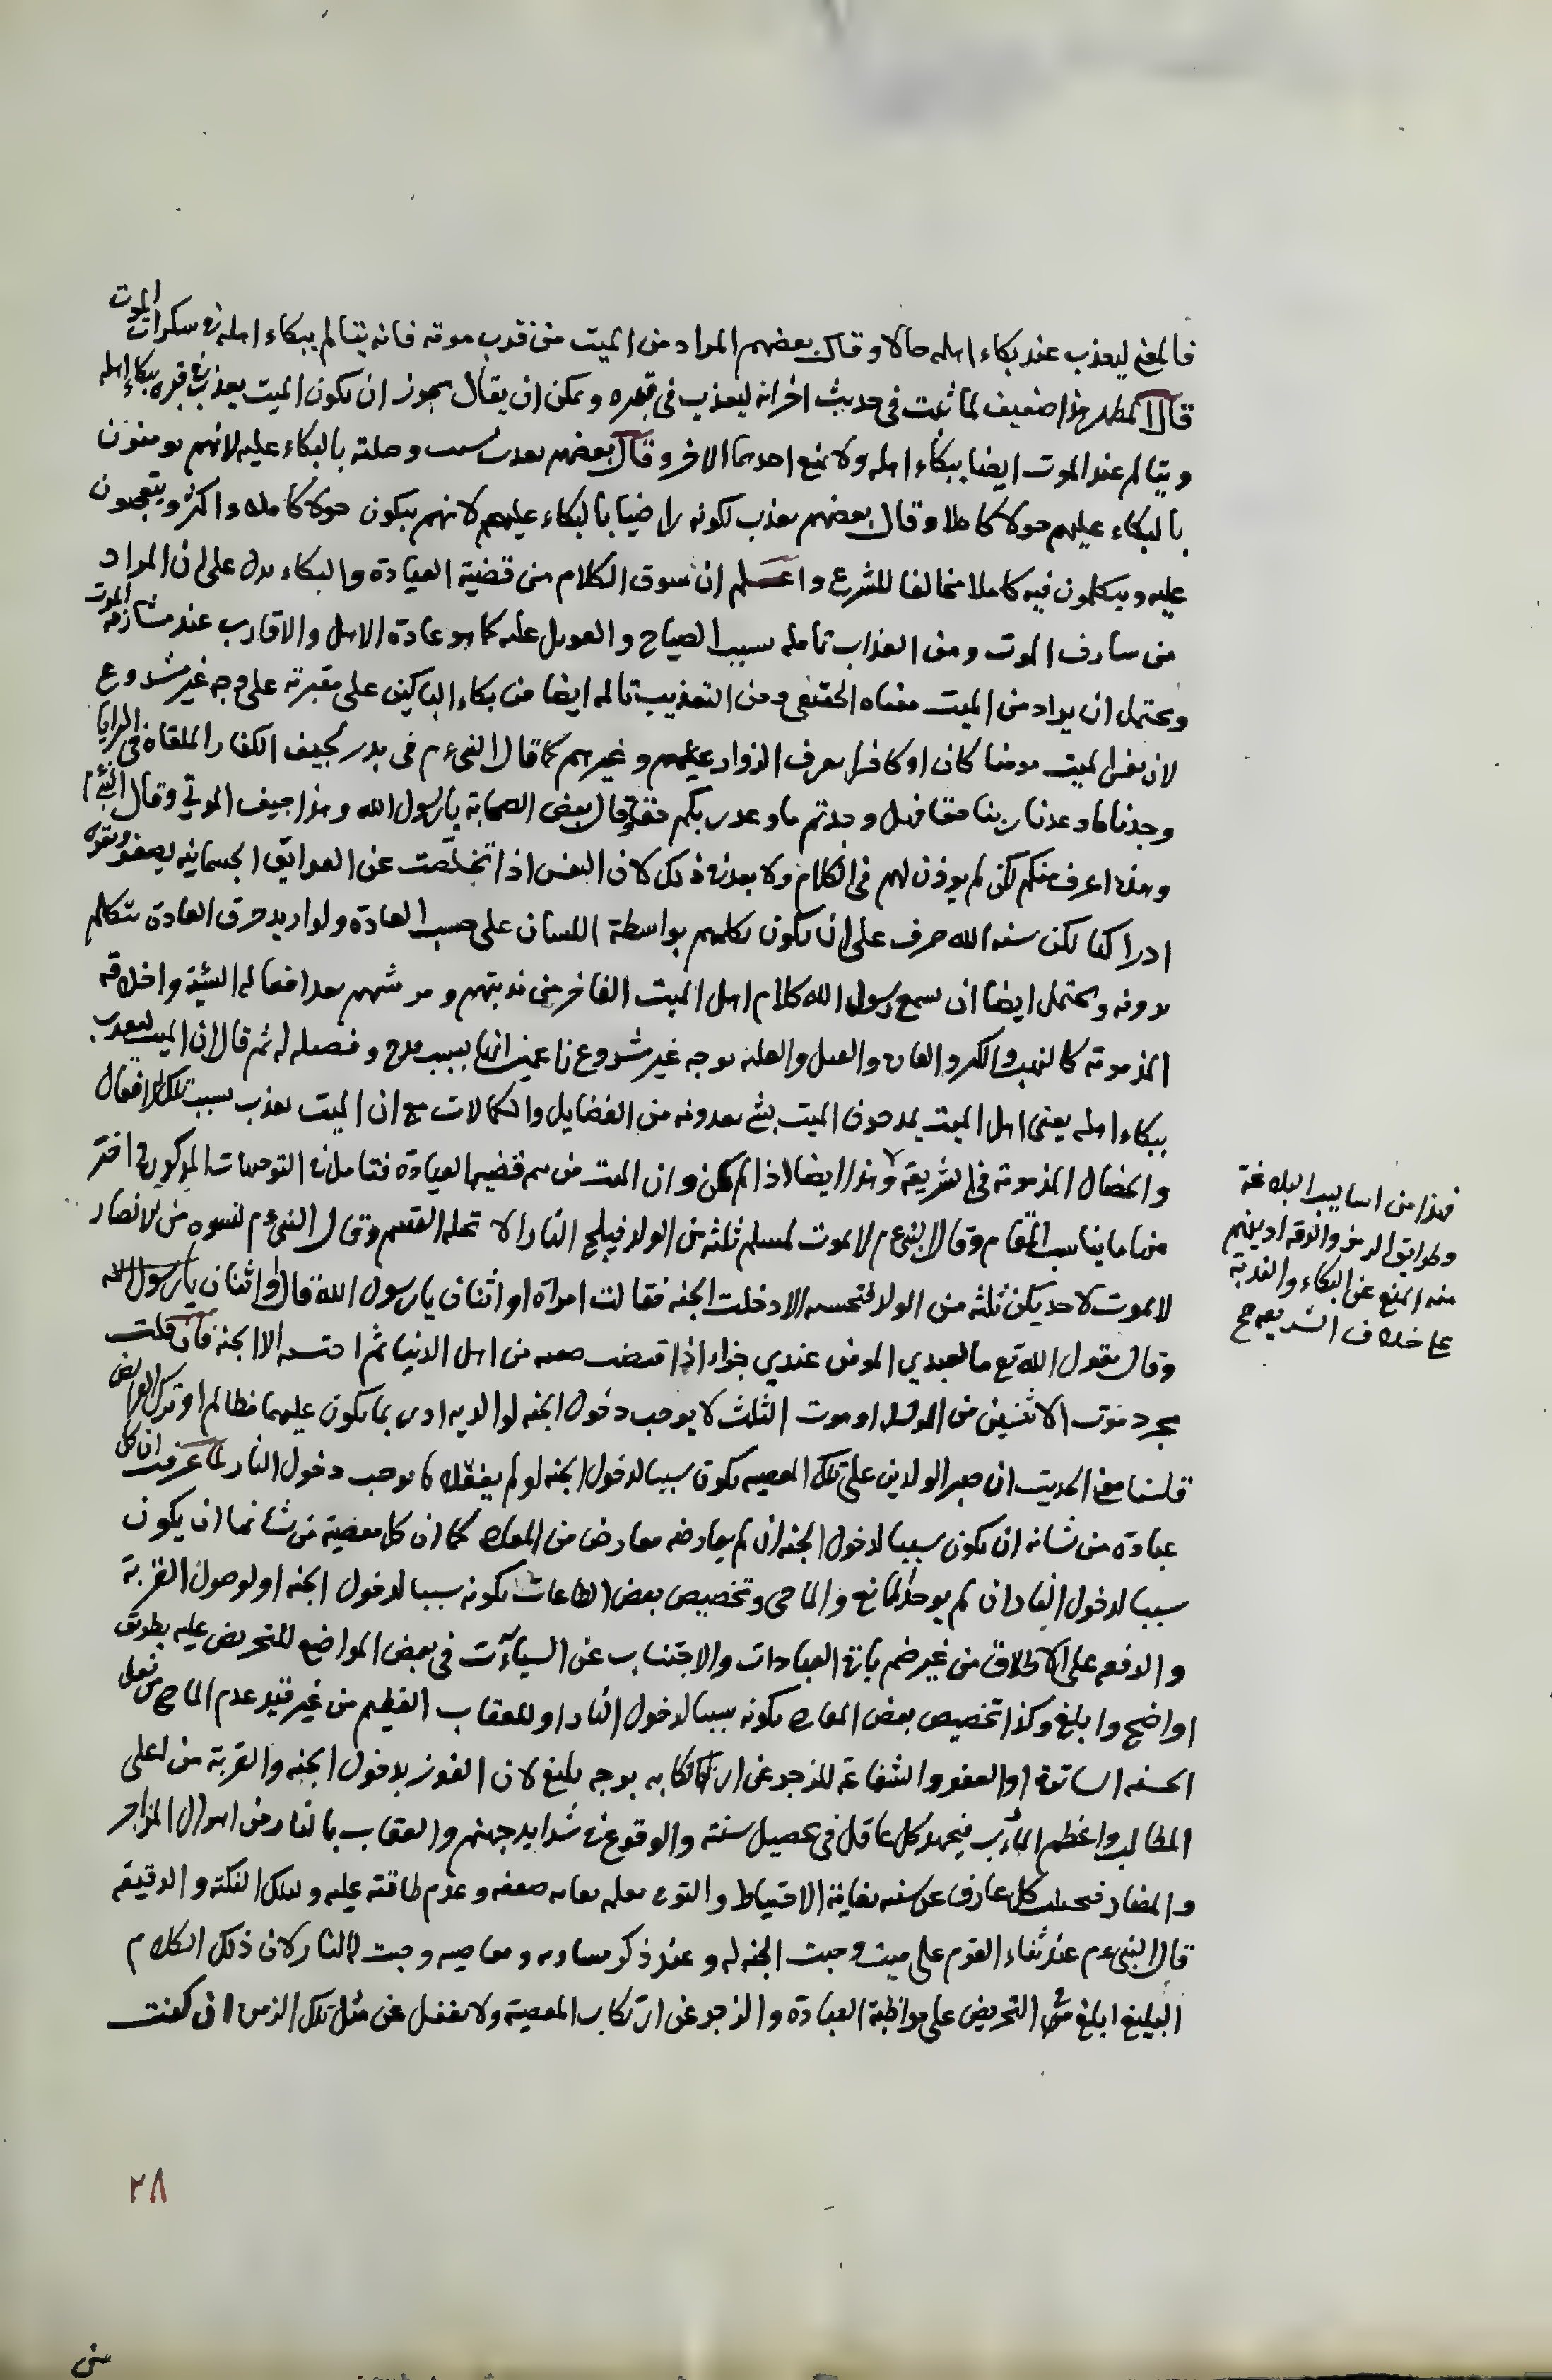 فالمعنى ليعذب عند بكاء اهله حالا وقال بعضهم المراد من الميت من قرب موته فانه يتالم ببكاء اهله في سكرات الموت
قال المطهر هذا ضعيف لما ثبت في حديث اخر انه ليعذب في قبره ويمكن ان يقال يجوز ان يكون الميت يعذب في قبره ببكاء اهله
ويتالم عند الموت ايضا ببكاء اهله ولا يمنع احدهما الاخر وقال بعضهم يعذب بسبب وصيته بالبكاء عليه لانهم يوصون
بالبكاء عليهم حولا كاملا وقال بعضهم يعذب لكونه راضيا بالبكاء عليهم لانهم يبكون حولا كاملا واكثر ويتجمعون
عليه ويتكلمون فيه كلاما مخالفا للشرع واعلم ان سوق الكلام من قضية العيادة والبكاء يدل على ان المراد
من شارف الموت ومن العذاب تالمه بسبب الصياح والعويل عليه كما هو عادة الاهل والاقارب عند مشارفة الموت
ويحتمل ان يراد من الميت معناه الحقيقي ومن التعذيب تالمه ايضا من بكاء الباكين على مقبرته على وجه غير مشروع
لان نفس الميت مومنا كان او كافرا يعرف الزوار عليهم وغيرهم كما قال النبي ءم في بدر لجيف الكفار الملقاة في
وجدنا ما وعدنا ربنا حقا فهل وجدتم ما وعد ربكم حقا وقال بعض الصحابة يا رسول الله وهذا جيف الموتى وقال النبي ءم
وهذه اعرف منكم لكن لم يوذن لهم في الكلام ولا بعد في ذلك لان النفس اذا تخلصت عن العوائق الجسمانية يصفو ويقوى
ادراكها لكن سنة الله جرت على ان يكون تكلمهم بواسطة اللسان على حسب العادة ولو اريد خرق العادة يتكلم
بدونه ويحتمل ايضا ان يسمع رسول الله كلام اهل الميت الفاخر من ندبتهم و بعد افعاله السيئة واخلاقه
المذمومة كالنهب والغارة والقتل والغلبة بوجه غير مشروع زاعمين انها بسبب مدح وفضيلة له ثم قال ان الميت ليعذب
ببكاء اهله يعني اهل الميت يمدحون الميت بشئ يعدونه من الفضايل والكمالات مع ان الميت يعذب بسبب تلك الافعال
والخصال المذمومة في الشريعة وهذا ايضا اذا لم يكن وان الميت من قضيه العيادة فتامل في التوجيهات المذكورة واختر
منها ما يناسب المقام وقال النبي ءم لا يموت لمسلم ثلثة من الولد فيلج النار الا تحلة القسم وقال النبي ءم لنسوة من الانصار
لا يموت لاحديكن ثلثة من الولد فتحتسبه الا دخلت الجنه فقالت امراة او اثنان يا رسول الله قال او اثنان يا رسول الله
وقال يقول الله تع ما لعبدي المومن عندي جزاء اذا قبضت صفيه من اهل الدنيا ثم احتسبه الا الجنة فان قلت
مجرد موت الاثنين من الولد او موت الثلث لا يوجب دخول الجنه لوالديه اذ ربما يكون عليهما مظالم او ترك الفرايض
قلنا معنى الحديث ان صبر الوالدين على تلك المصيبه يكون سببا لدخول الجنه لو لم يفعلا ما يوجب دخول النار لما عرفت ان كل
عبادة من شانه ان يكون سببا لدخول الجنه ان لم يعارضه معارض من المعاصي كما ان كل معصية من شانها ان يكون
سببا لدخول النار ان لم يوجد المانع والماحي وتخصيص بعض الطاعات بكونه سببا لدخول الجنه او لوصول القربة
والرفعه على الاطلاق من غير ضم باقي العبادات والاجتناب عن السيآت في بعض المواضع للتحريض عليه بطريق
اواضح وابلغ وكذا تخصيص بعض المعاصي بكونه سببا لدخول النار او للعقاب العظيم من غير قيد عدم الماحي من فعل
الحسنه الساترة او العفو والشفاعة للزجر عن ارتكابه بوجه بليغ لان الفوز بدخول الجنه والقربة من اعلى
المطالب واعظم المآرب فيجهد كل عاقل في تحصيل سننه والوقوع في شدايد جهنم والعقاب بالنار من اهوال المزاجر
والمضار فيجتنب كل عارف عن سننه بغاية الاحتياط والتوقي بعلمه بغاية ضعفه وعدم طاقته عليه ولتلك النكتة والدقيقه
قال النبي ءم عند ثناء القوم على ميت وجبت الجنه له وعند ذكر مساويه ومعاصيه وجبت له النار لان ذلك الكلام
البليغ ابلغ في التحريض على مواظبة العبادة والزجر عن ارتكاب المعصية ولا تغفل عن مثل تلك الرمز ان كنت
فهذا من اساليب البلاغة
وطرايق الرمز والدقه اذ يفهم
منه المنع عن البكاء والندبة
على خلاف الشريعه صح
٢٨
من